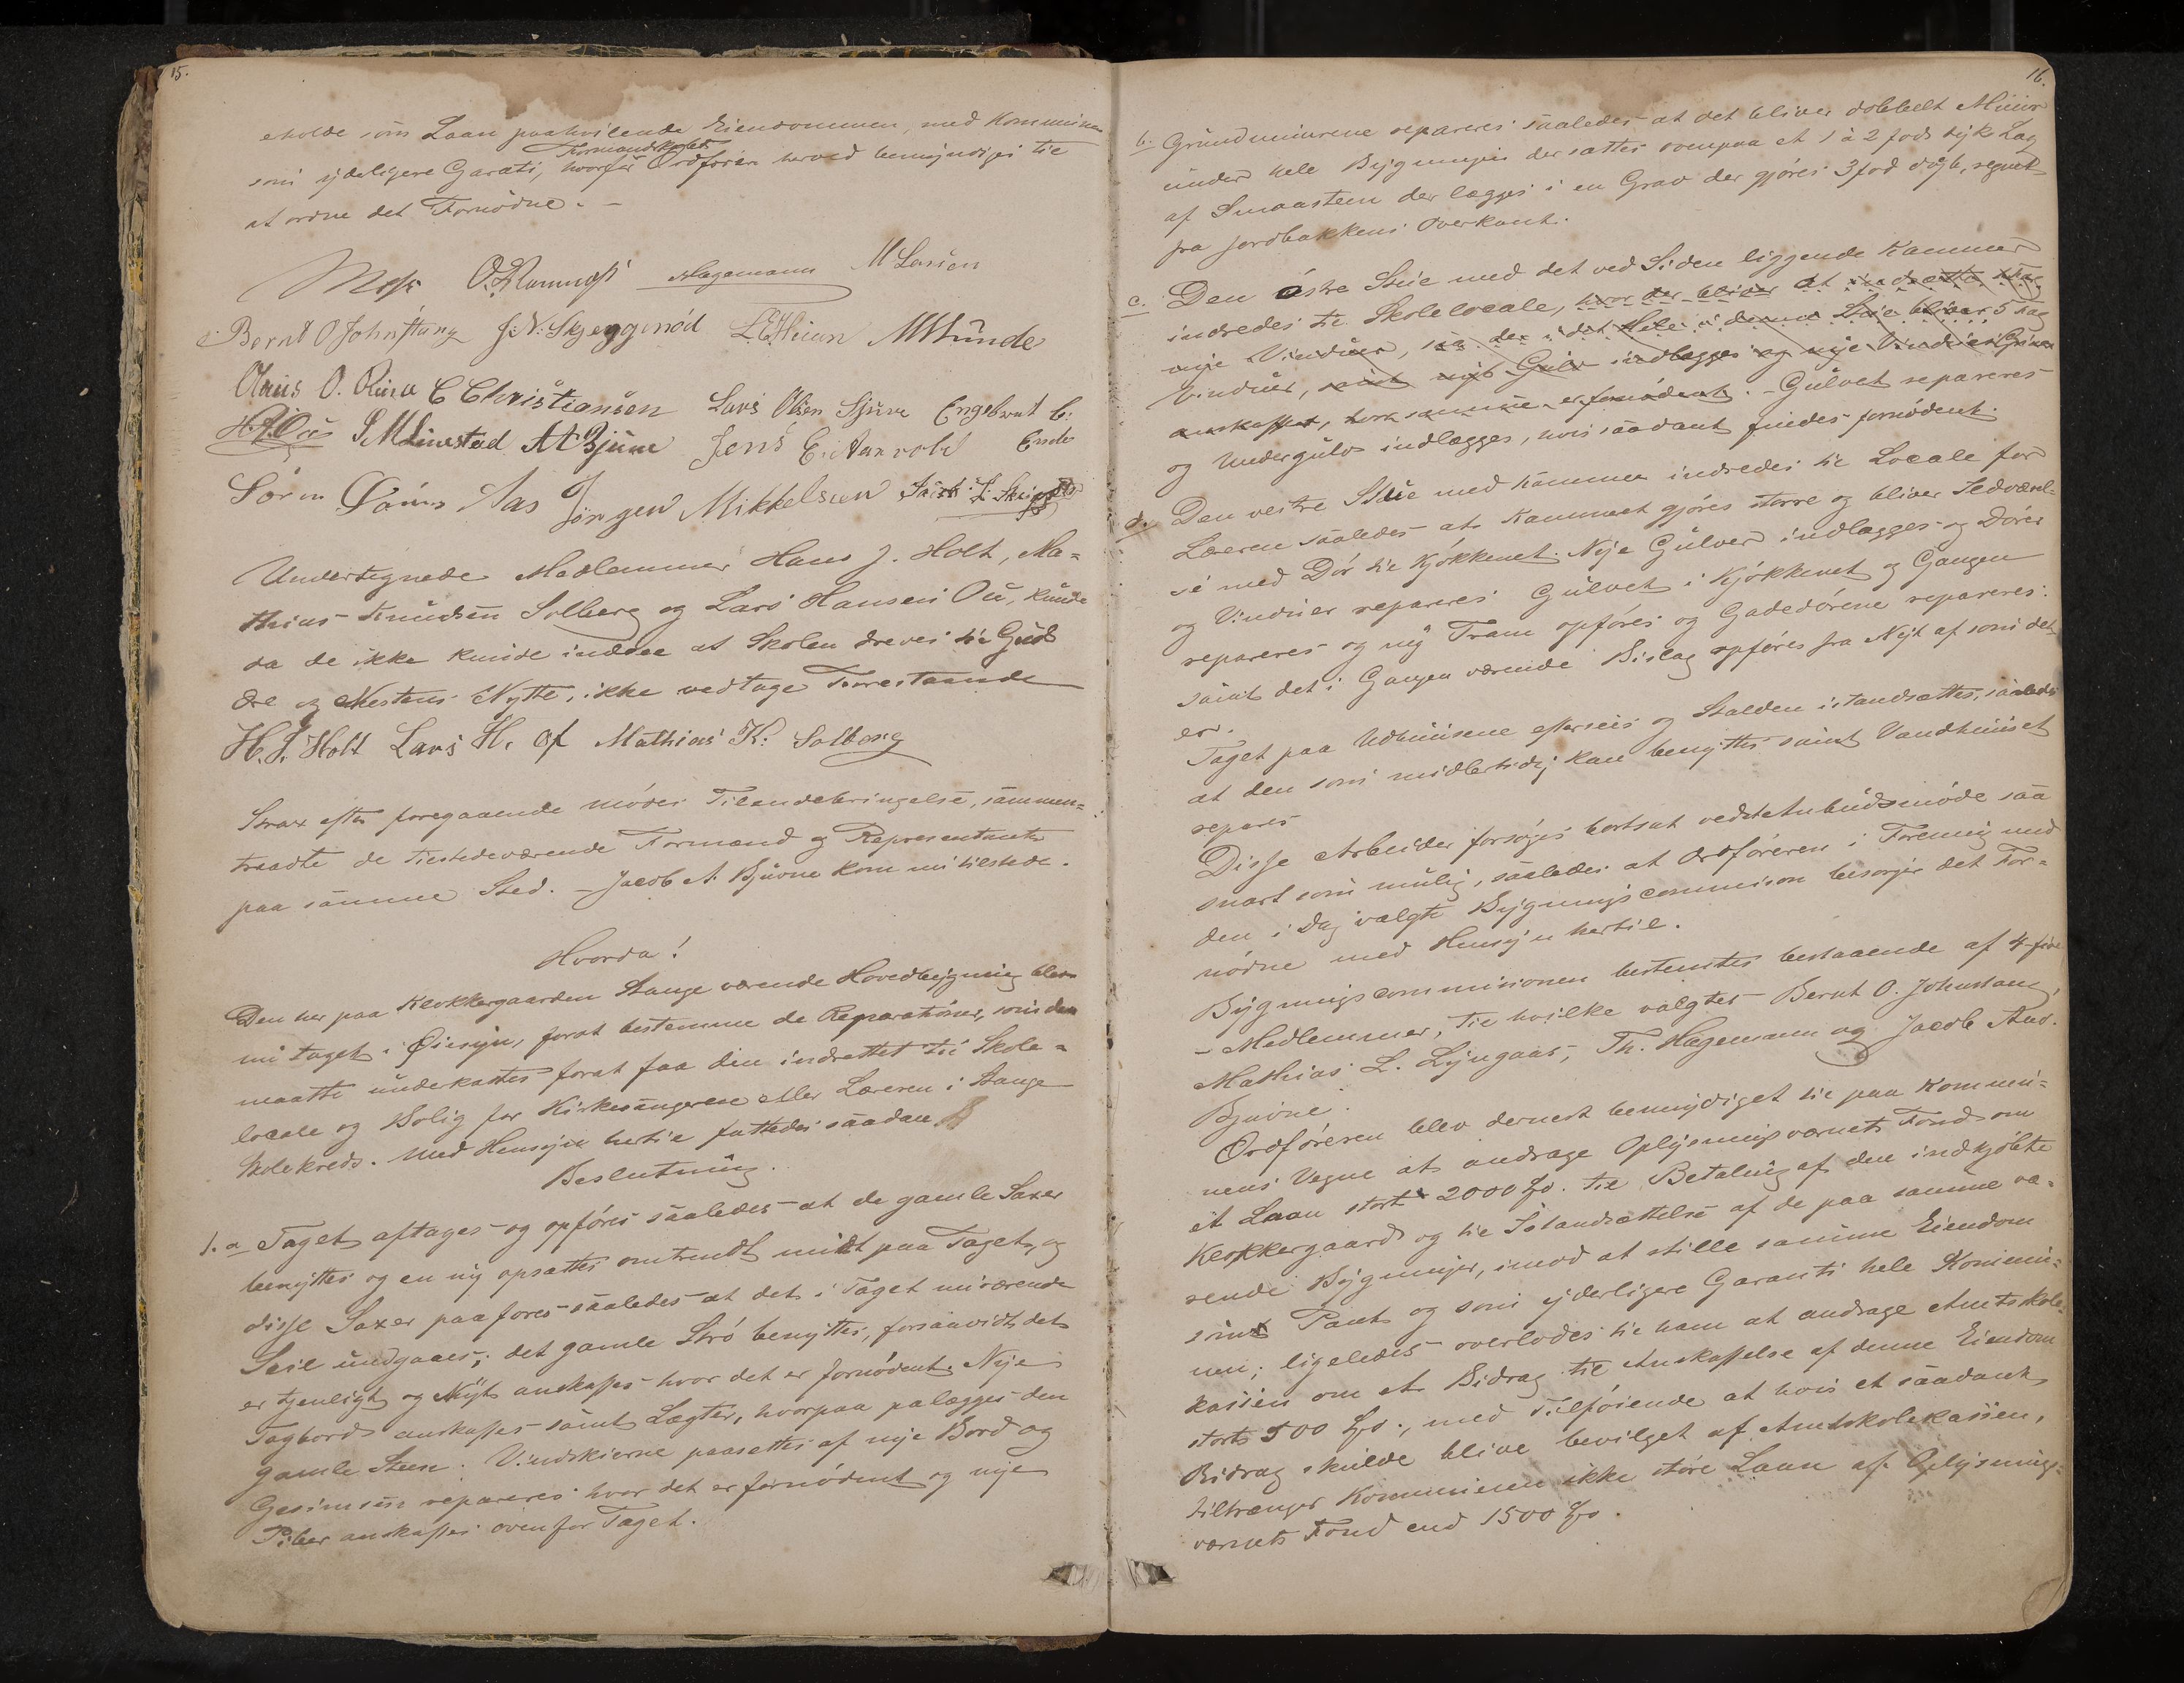 15.
eholde som Laan paahvilende Eiendommen, med Kommunen
som yderligere Garati, hvorfor Formandskabets Ordfører herved bemyndiges til
at ordne det Fornødne. -
Moss O. Ramnæss Hagemann M Larsen
Bernt O Johnstang J. N. Skjeggerød L. E. Thuun M Munde
Olaus O. Runa C Christiansen Lars Olsen Sjuve Engebret C.
H. A. Ous S. M. Linnestad A A Bjune Jens E. Aanrold Ende
Søren Aas Jørgen Mikkelsen
Undertegnede Medlemmer Hans J. Holt, Ma=
thias Knudsen Solberg og Lars Hansen Ou, kunde
da de ikke kunde indsee at Skolen dreves til Guds
Ære og Nestens Nytte, ikke vedtage Forestaaende
H. J. Holt Lars H. Of Mathias K: Solberg
Strax efter foregaaende Mødes Tilendebringelse, sammen=
traadte de tilstedeværende Formænd og Representanter
paa samme Sted. - Jacob A. Bjuvne kom nu tilstede.
Hvorda!
Den her paa Klokkergaarden Stange værende Hovedbygning blev
nu taget i Øiesyn, forat bestemme de Reparationer, som den
maatte underkastes forat faa den indrettet til Skole=
locale og Bolig for Kirkesangeren eller Læreren i Stange
Skolekreds. Med Hensyn hertil fattedes saadan
Beslutning.
1. a Taget aftages og opføres saaledes at de gamle Saxer
benyttes og en ny opsættes omtrendt midt paa Taget, og
disse Saxer paafores saaledes at det i Taget nuværende
Seil undgaaes; det gamle Strø benyttes, forsaavidt det
er tjenligt og Nyt anskaffes hvor det er fornødent. Nye
Tagbord anskaffes samt Lægter, hvorpaa palægges den
gamle Steen. Vindskierne paasættes af nye Bord og
Gesimsen repareres hvor det er fornødent og nye
Piber anskaffes ovenfor Taget.
16.
b. Grundmurene repareres saaledes at det bliver dobbelt Muur
under hele Bygningen der sættes ovenpaa et 1 à 2 fods tyk Lag
af Smaasteen der lægges i en Grav der gjøres 3 fod dyb, regnet
fra Jordbakkens Overkant.
c. Den østre Stue med det ved Siden liggende Kammer
indredes til Skolelocale, hvor der bliver at indsætte 2 Fag
nye Vinduer, saa der i det Hele i denne Stue bliver 5 Fag
Vinduer, samt nyt Gulv indlægges og nye Vinduer i Gruen
anskaffes, hvor samme er fornødent. - Gulvet repareres
og Undergulv indlægges, hvis saadant findes fornødent.
d. Den vestre Stue med Kammer indredes til Locale for
Læreren saaledes at Kammeret gjøres større og bliver Sedværel=
se med Dør til Kjøkkenet. Nye Gulver indlægges og Dører
og Vinduer repareres Gulvet i Kjøkkenet og Gangen
repareres og ny Tram opføres og Gadedørene repareres.
samt det i Gangen værende Bislag opføres fra Nyt af som det
er.
Taget paa Udhusene efterseis og Stalden istandsættes, saaledes
at den som midlertidig kan benyttes samt Vandhuuset
repares
Disse Arbeider forsøges bortsat ved et Anbudsmøde saa
snart som mulig, saaledes at Ordføreren i Forening med
den i Dag valgte Bygningscommision besørger det For=
nødne med Hensyn hertil.
Bygningscommisionen bestemtes bestaaende af 4 fire
- Medlemmer, til hvilke valgtes Bernt O. Johnstang,
Mathias L. Lyngaas, Th. Hagemann og Jacob And.
Bjuvne.
Ordføreren blev dernest bemydiget til paa Kommu=
nens Vegne at andrage Oplysningsværnets Fond om
et Laan stort 2000 Spd. til Betaling af den indkjøbte
Klokkergaard og til Istandsættelse af de paa samme væ=
rende Bygninger, imod at stille samme Eiendom
som Pant og som yderligere Garanti hele Kommu=
nen; ligeledes overlodes til ham at andrage Amtskole=
kassen om et Bidrag til Anskaffelse af denne Eiendom
stort 500 Spd., med Tilføiende at hvis et saadant
Bidrag skulde blive bevilget af Amtskolekassen,
tiltrænger Kommunen ikke støre Laan af Oplysnings=
værnets Fond end 1500 Spd.